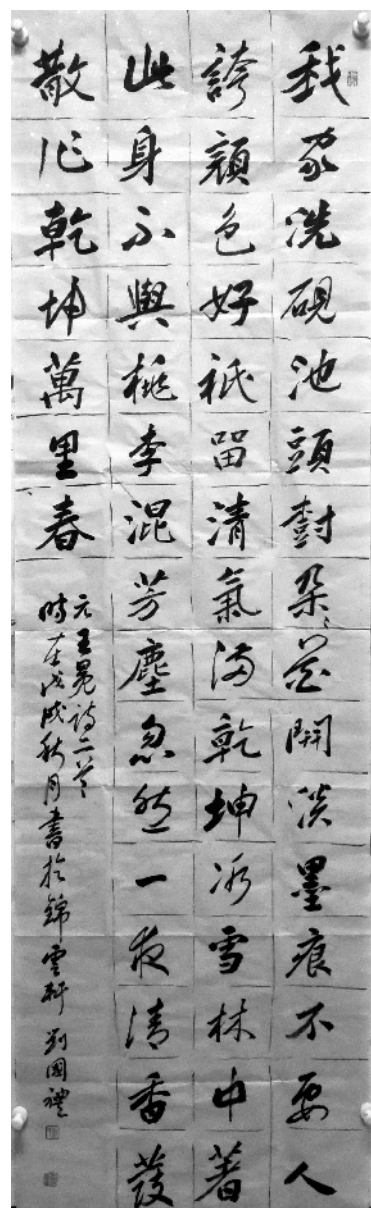 我家洗硯池頭樹朵々花開淡墨痕不要人
誇顏色好祇留清氣滿乾坤冰雪林中著
此身不與桃李混芳塵忽然一夜清香發
散作乾坤萬里春
元王冕詩二首
時在戊戌秋月書於錦雲軒 劉國禮